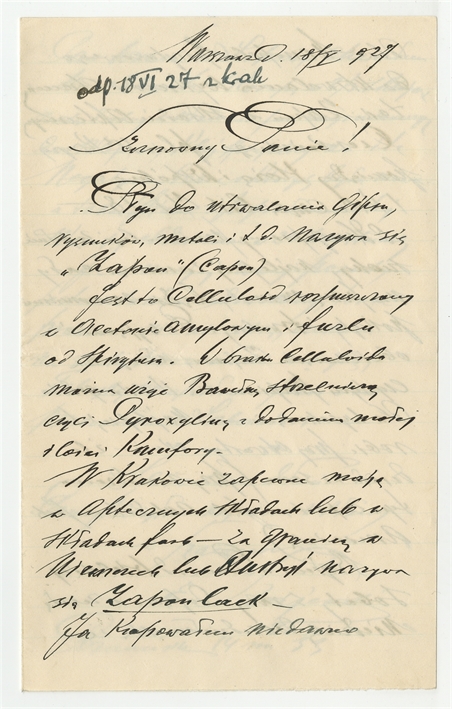 Warszawa d. 18/V 927
odp. 18 VI 27 z kat
Szanowny Panie!
Płyn do utrwalania Gipsu,
rysunków, metali i t. d. nazywa się
"Zapon" (Capon)
Jest to Celluloid rozpuszczony
w Acetonie Amylowym i fuzlu
od Spirytusu. W braku Celluloidu
można wziąć Bawełnę strzelniczą
czyli Pyroxylinę z dodaniem małej
ilości Kamfory.
W Krakowie zapewne mają
w Aptecznych Składach lub w
Składach farb – za granicą w
Niemczech lub Austryi nazywa
się Zaponlack –
Ja kupowałem niedawno